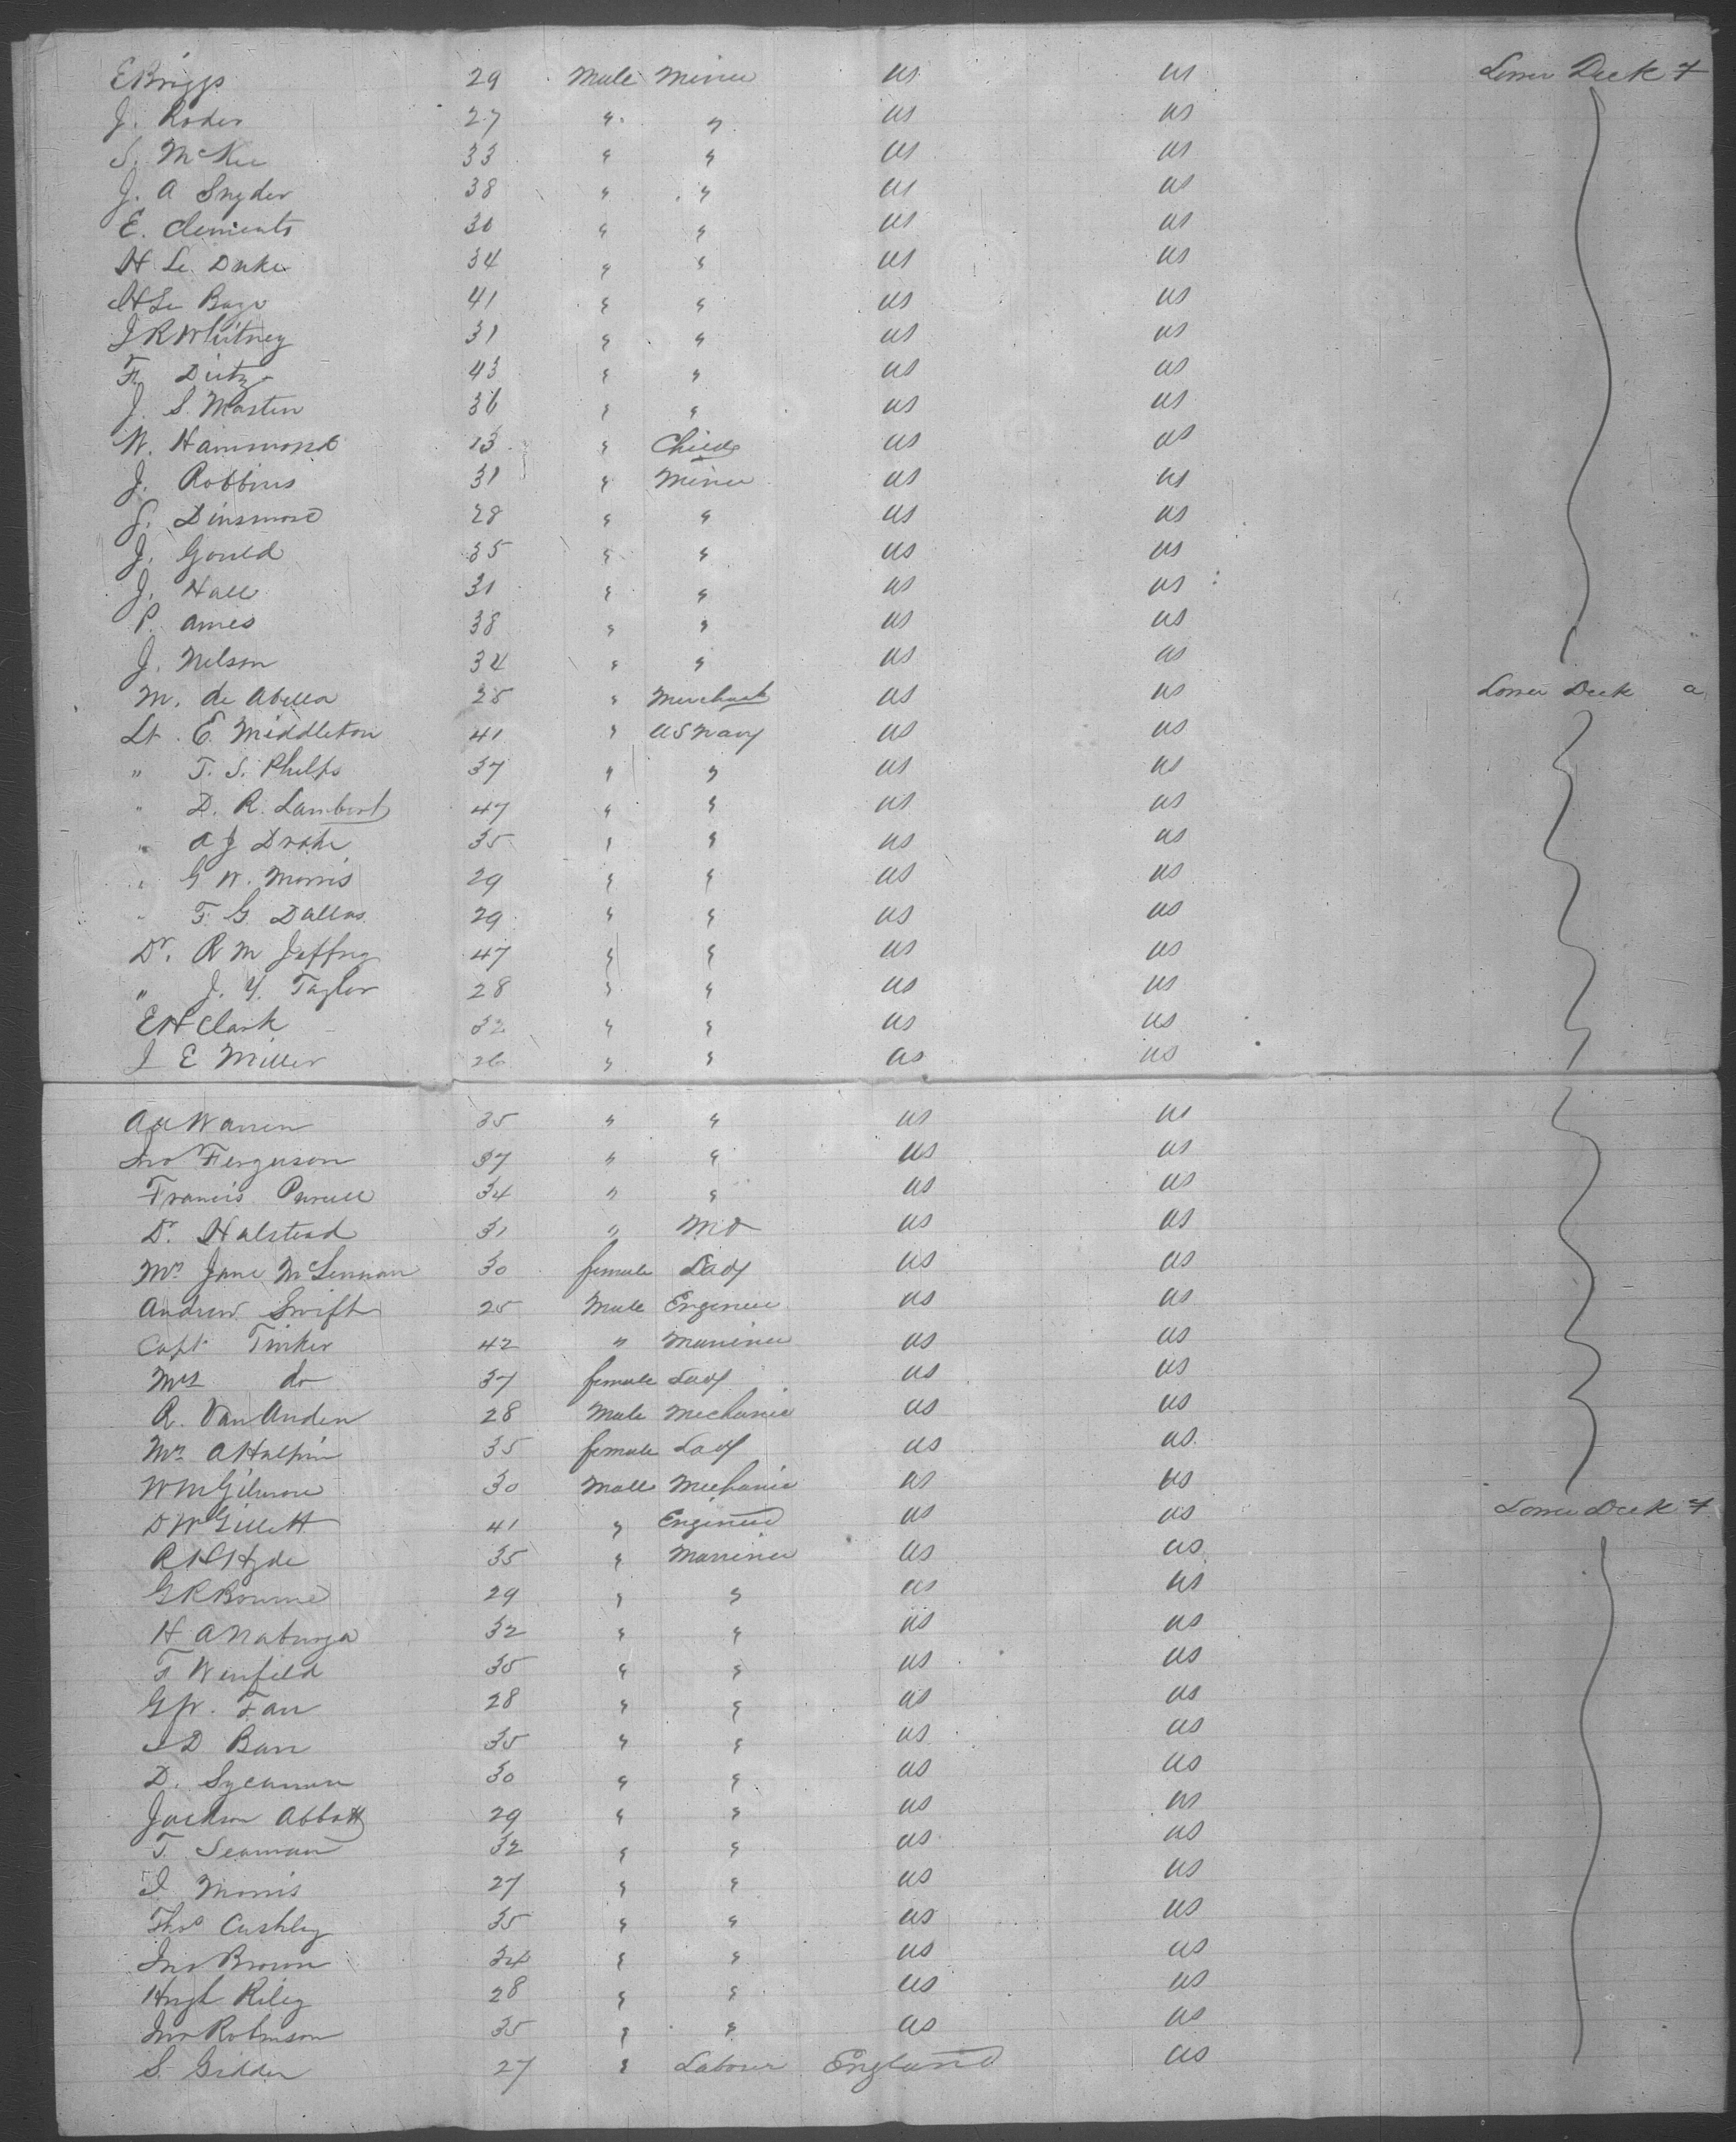 E Briggs 29 Male Miner US US Lower Deck f
J. Roder 27 " " US US
S. McKee 33 " " US US
J. A Snyder 38 " " US US
E. Clements 30 " " US US
H Le Duke 34 " " US US
H Le Bage 41 " " US US
J R Whitney 31 " " US US
F. Dietz 43 " " US US
J. S. Masten 36 " " US US
W. Hammond 13 " Child US US
J. Robbins 31 " Miner US US
J. Dinsmore 28 " " US US
J. Gould 35 " " US US
J. Hall 31 " " US US
P. Ames 38 " " US US
J. Nelson 34 " " US US
M. de Abella 25 " Merchant US US Lower Deck a
Lt. E. Middleton 41 " US Navy US US
" T. S. Phelps 37 " " US US
" D. R. Lambert 47 " " US US
" A J Drake 35 " " US US
" G W. Morris 29 " " US US
" F. G. Dallas 29 " " US US
Dr. R M Jeffrey 47 " " US US
" J. Y. Taylor 28 " " US US
E H Clark 32 " " US US
J E Miller 26 " " US US
A A Warren 35 " " US US
Jno Ferguson 37 " " US US
Francis Purcell 34 " " US US
Dr. Halstead 31 " MD US US
Mrs Jane McLennan 30 female Lady US US
Andrew Swift 25 Male Engineer US US
Capt Tinker 42 " Mariner US US
Mrs do 37 female Lady US US
R. Van Anden 28 Male Mechanic US US
Mrs A Halpin 35 female Lady US US
W M Gilmore 30 Male Mechanic US US
D W Gillett 41 " Engineer US US Lower Deck f
R H Hyde 35 " Mariner US US
G R Bourne 29 " " US US
H A 32 " " US US
F Winfield 35 " " US US
G W. Farr 28 " " US US
D Barr 35 " " US US
D. 30 " " US US
Jackson Abbott 29 " " US US
T. Seaman 32 " " US US
J Morris 27 " " US US
Thos Cushley 35 " " US US
Jno Brown 34 " " US US
Hugh Riley 28 " " US US
Jno Robinson 35 " " US US
S. Gidden 27 " Labourer England US